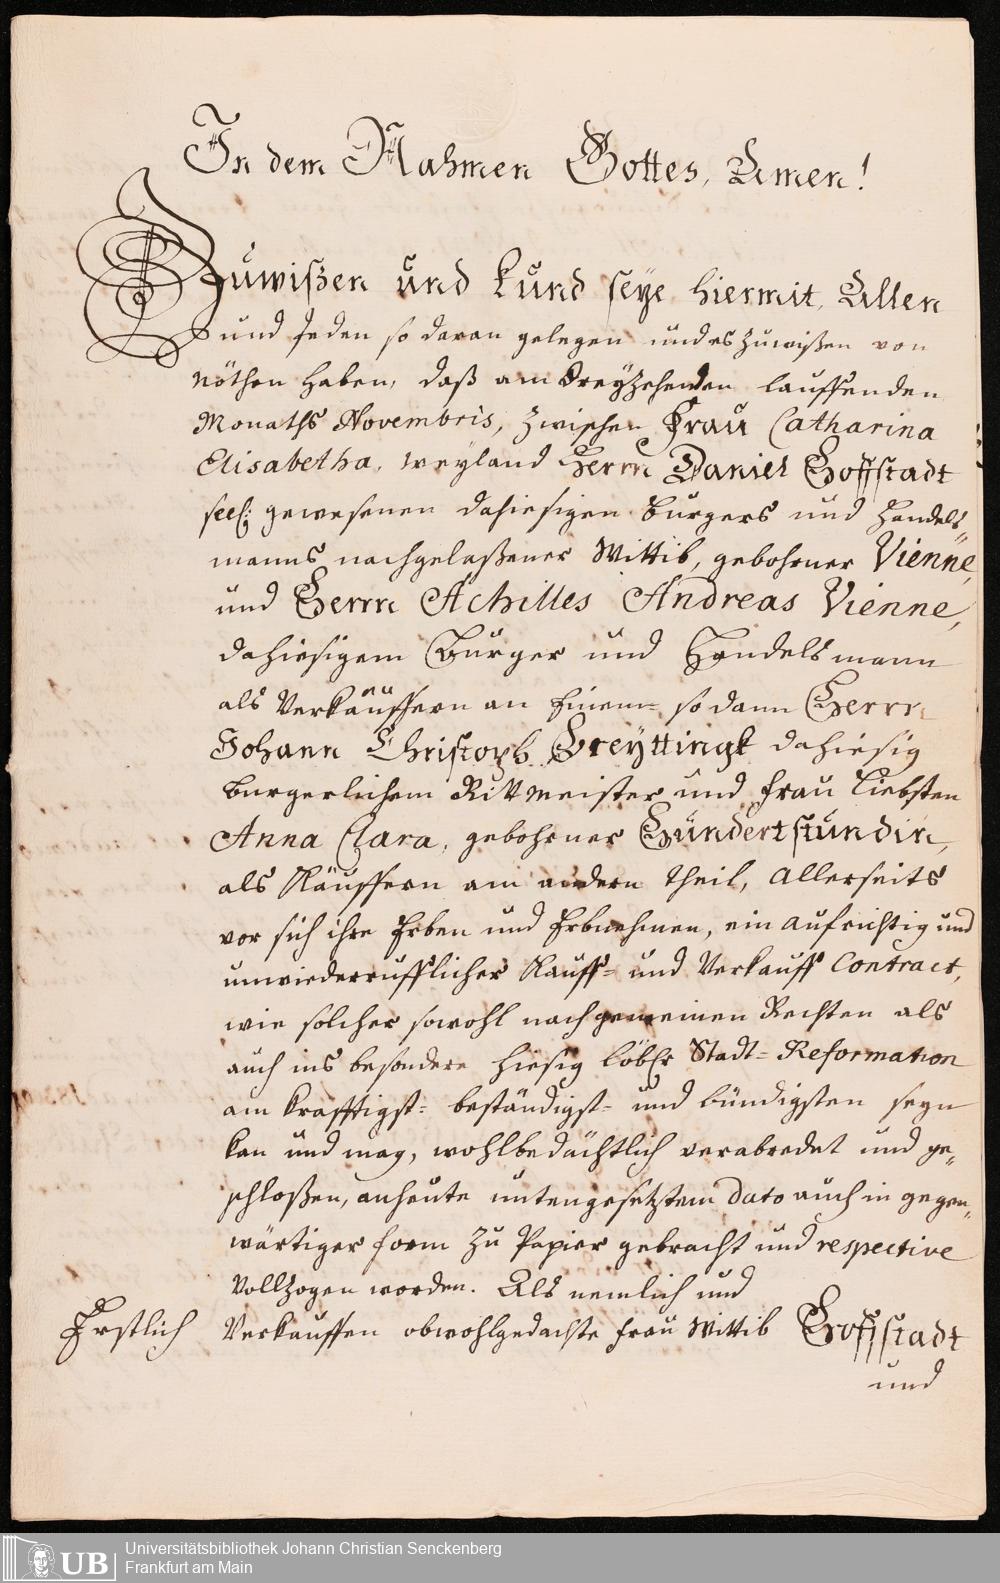 In dem Nahmen Gottes, Amen!
Zuwißen und kund seye hiermit, Allen
und Jeden so daran gelegen und es zuwißen von
nöthen haben, daß am dreyzehenden lauffenden
Monaths Novembris, zwischen Frau Catharina
Elisabetha, weyland Herrn Daniel Hoffstadt
seel: gewesenen dahiesigen Burgers und Handels-
manns nachgelaßener Wittib, gebohrner Vienne,
und Herrn Achilles Andreas Vienne,
dahiesigem Burger und Handelsmann
als Verkäuffern an Einem- so dann Herrn
Johann Christoph Greyttingk dahiesig
burgerlichem Rittmeister und Frau Liebsten
Anna Clara, gebohrner Hündertstündin,
als Käuffern am andern Theil, allerseits
vor sich ihre Erben und Erbnehmen, ein aufrichtig und
unwiederrufflicher Kauff- und Verkauff Contract,
wie solcher sowohl nach gemeinen Rechten als
auch ins besondere hiesig löblr Stadt-Reformation
am krafftigst- beständigst- und bündigsten seyn
kan und mag, wohlbedächtlich verabredet und ge-
schloßen, anheute untengesetztem dato auch in gegen-
wärtiger form zu Papier gebracht und respective
vollzogen worden. Als nemlich und
Erstlich Verkauffen obwohlgedachte Frau Wittib Hoffstadt
und
UB
Universitätsbibliothek Johann Christian Senckenberg
Frankfurt am Main